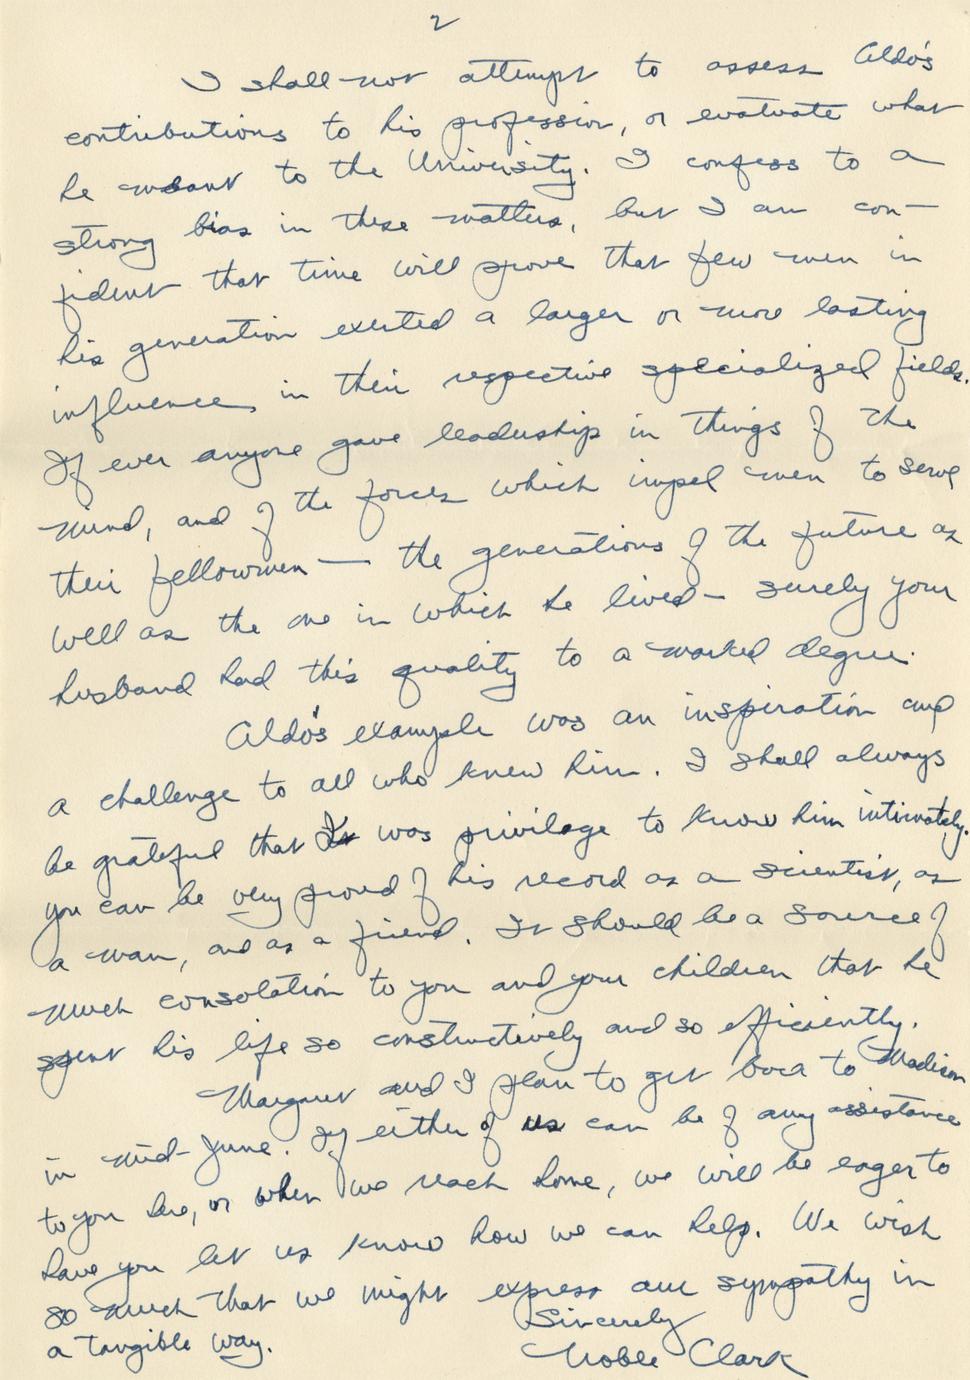 2
I shall not attempt to assess Aldo's
contributions to his profession, or evaluate what
he meant to the University. I confess to a
strong bias in these matters, but I am con-
fident that time will prove that few men in
his generation exerted a larger or more lasting
influence in their respective specialized fields.
If ever anyone gave leadership in things of the
mind, and of the forces which impel men to serve
their fellowmen — the generations of the future as
well as the one in which he lived — surely your
husband had this quality to a marked degree.
Aldo's example was an inspiration and
a challenge to all who knew him. I shall always
be grateful that it was privilage to know him intimately.
You can be very proud of his record as a scientist, as
a man, and as a friend. It should be a source of
much consolation to you and your children that he
spent his life so constructively and so efficiently.
Margaret and I plan to get back to Madison
in mid-June. If either of us can be of any assistance
to you here, or when we reach home, we will be eager to
have you let us know how we can help. We wish
so much that we might express our sympathy in
a tangible way.
Sincerely
Noble Clark